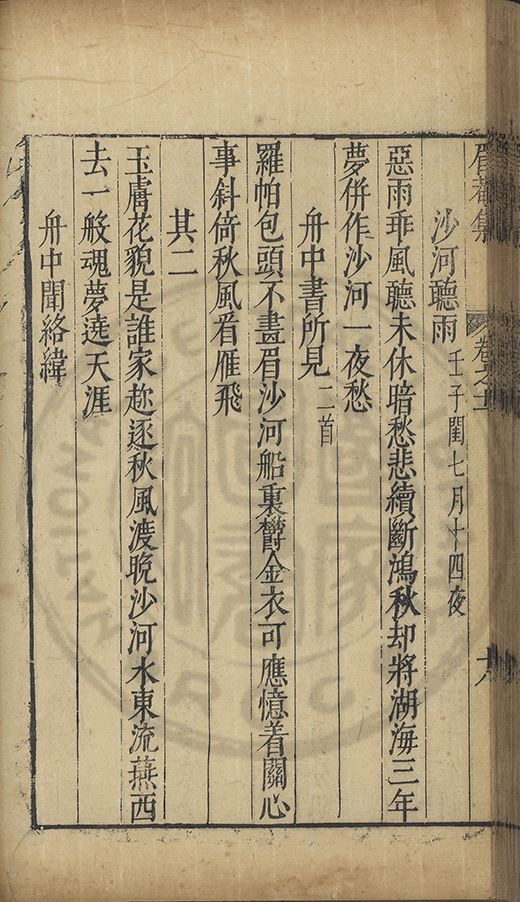 沙河聽雨 壬子閏七月十四夜
惡雨乖風聽未休暗愁悲續斷鴻秋却將湖海三年
夢併作沙河一夜愁
舟中書所見 二首
羅帕包頭不畫眉沙河船裏欝金衣可應憶着關心
事斜倚秋風看雁飛
其二
玉膚花貌是誰家趂逐秋風渡晩沙河水東流燕西
去一般魂夢遶天涯
舟中聞絡緯